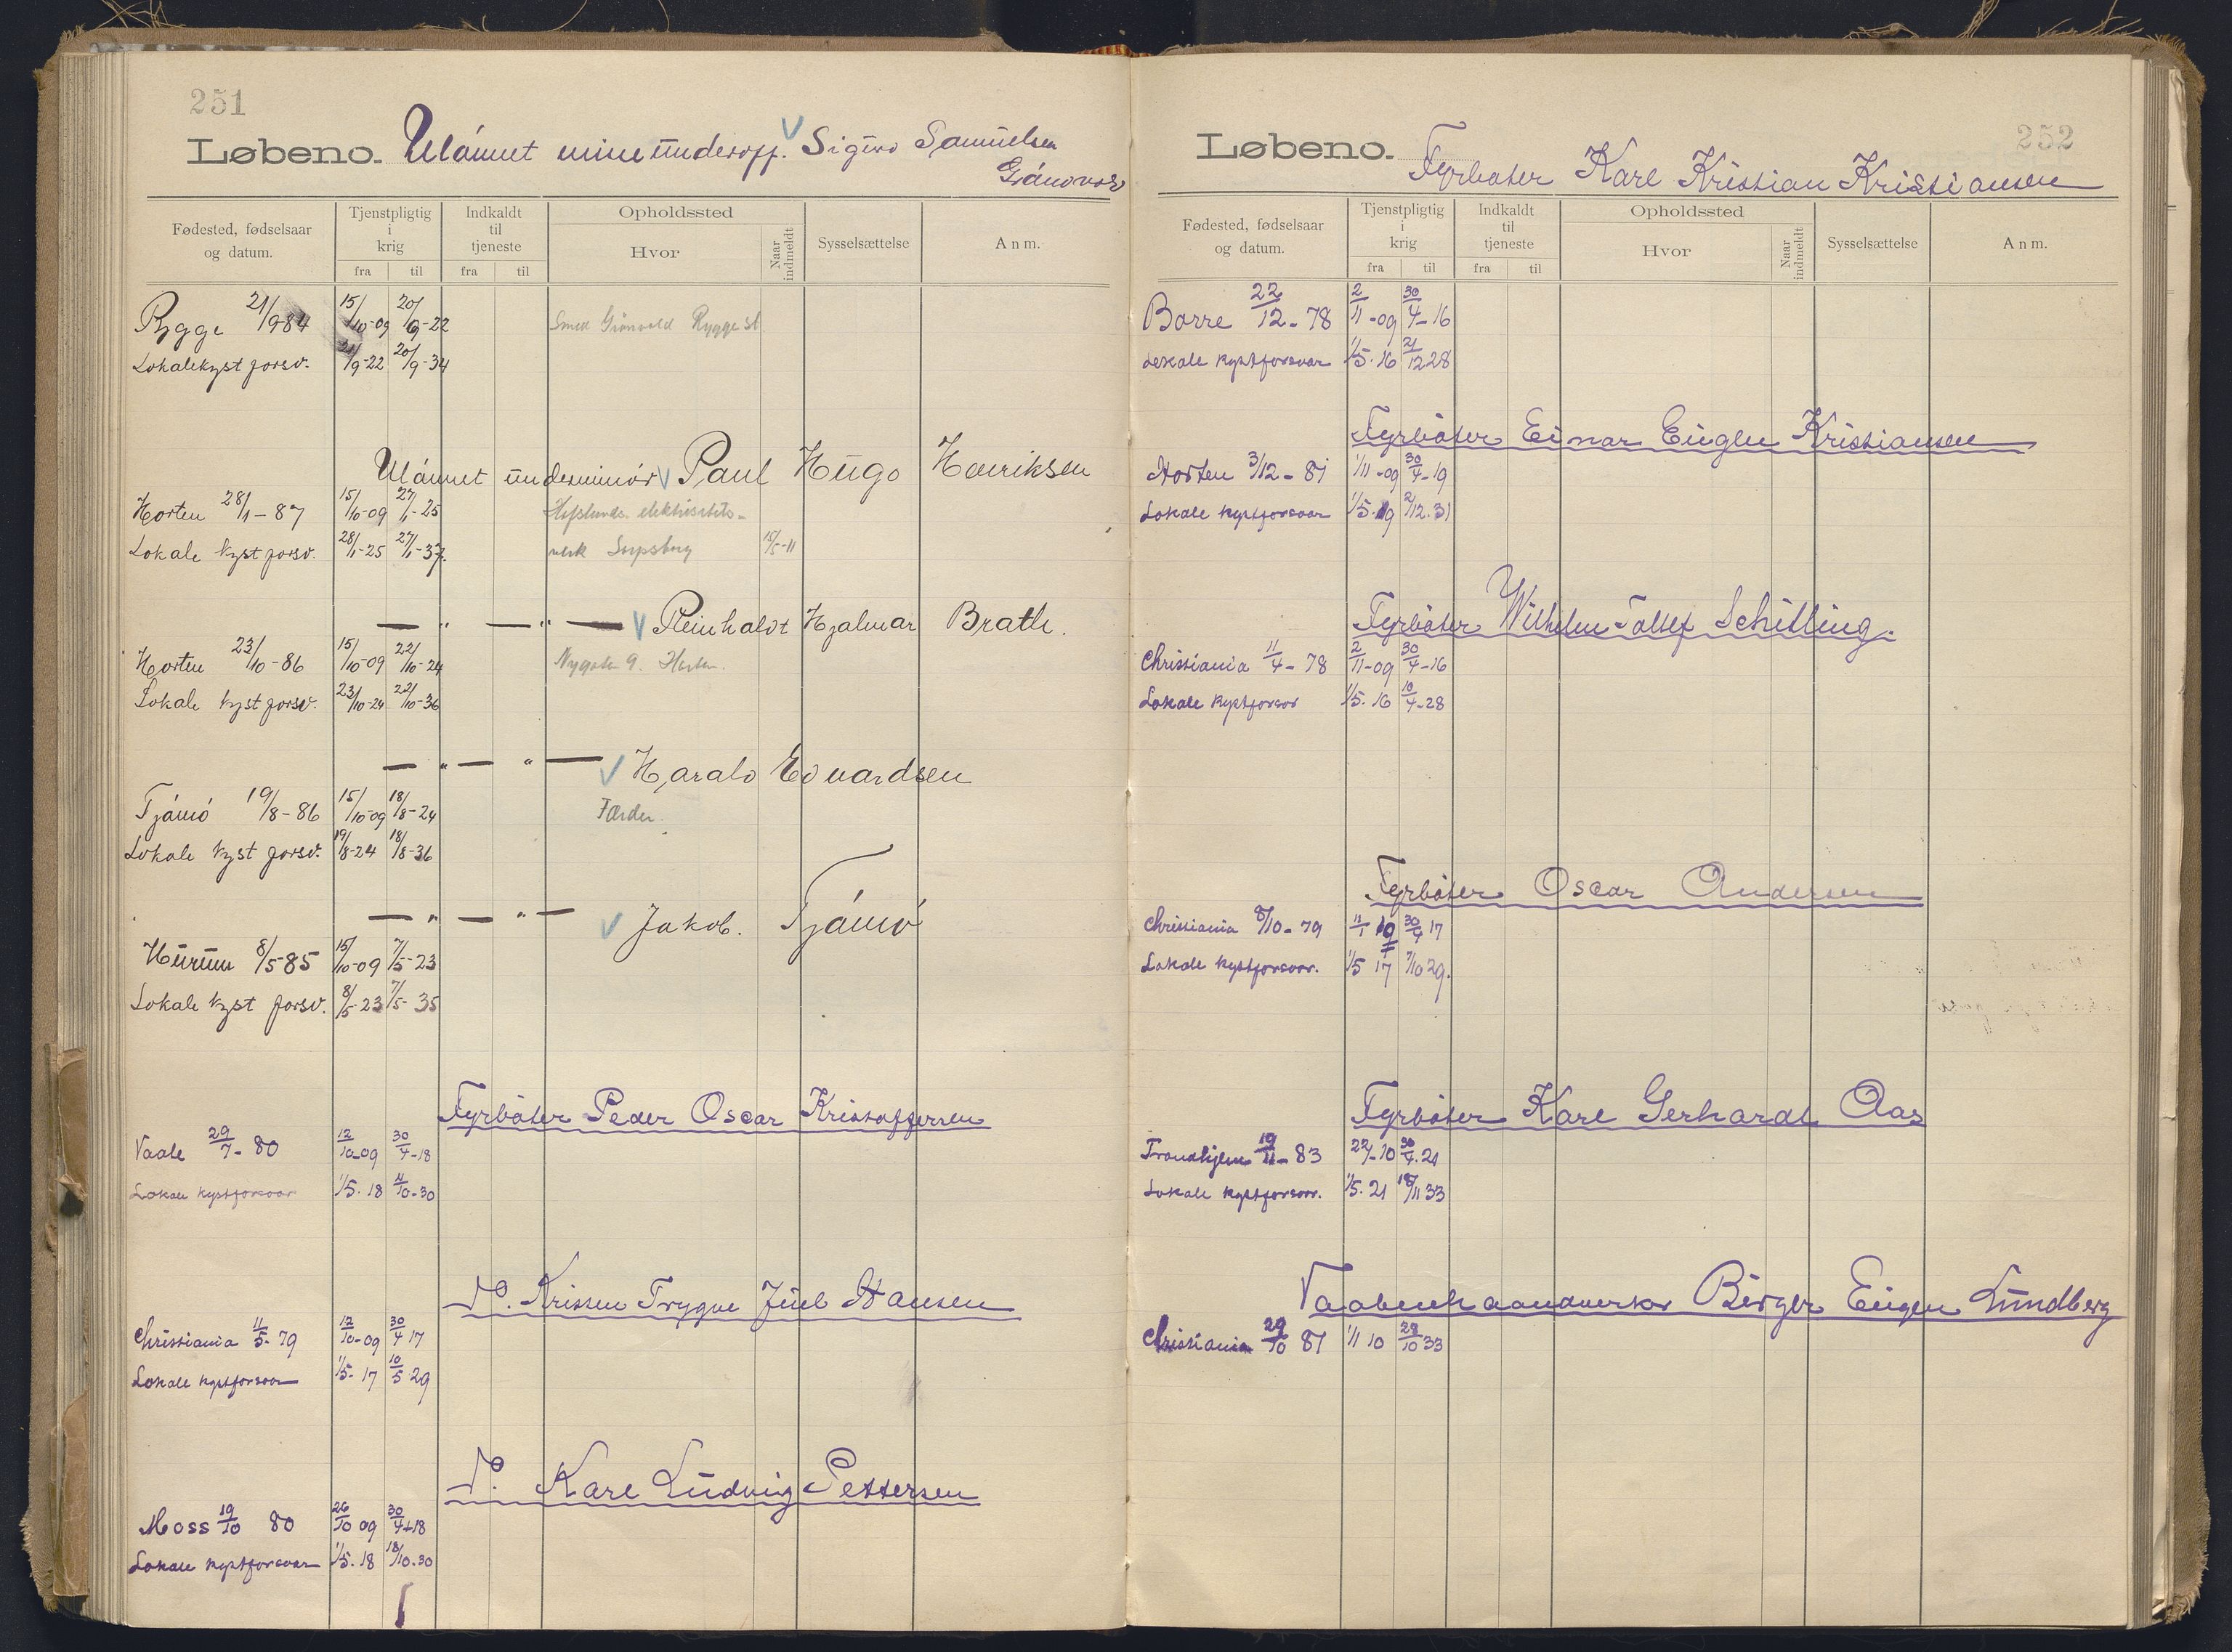 251
Løbeno. Ulánnet mineünderoff. Sigurd Samüelsen
Gránvold
Fødested, fødselsaar og datum. Tjenstpligtig i krig fra til Indkaldt til tjeneste fra til Opholdssted Hvor Naar indmeldt Sysselsættelse Anm.
Rygge 21/9-84 15/10-09 20/9-22 Smed Grønvold Rygge st
Lokalekyst forsv. 21/9-22 20/9-34
Ulánnet ünderminör V Paul Hügo Henriksen
Horten 28/1-87 15/10-09 27/1-25 Hafslunds elektricitets-
Lokale kyst forsv. 28/1-25 27/1-37. verk Sarpsborg 15/5-11
— " — " — V Reinhaldt Hjalmar Brath.
Horten 23/10-86 15/10-09 22/10-24 Nygata 9. Horten.
Lokale kyst forsv. 23/10-24 22/10-36
— " — " — V Harald Edvardsen
Tjámö 19/8-86 15/10-09 18/8-24 Færder.
Lokale kyst forsv. 19/8-24 18/8-36
— " — " — V Jakob. Tjámö
Hürüm 8/5-85 15/10-09 7/5-23
Lokale kyst forsv. 8/5-23 7/5-35
Fyrböter Peder Oscar Kristoffersen
Vaale 29/7-80 12/10-09 30/4-18
Lokale kystforsvar 1/5-18 /10-30
Do. Trygve Jüel Hansen
Christiania 11/5-79 12/10-09 30/4 17
Lokale kystforsvar 1/5-17 10/5 29
Do. Karl Lüdvig Pettersen
Moss 19/10 80 26/10 09 30/4-18
Lokale kystforsvar 1/5-18 18/10-30
252
Løbeno. Fyrböter Karl Kristian Kristiansen
Fødested, fødselsaar og datum. Tjenstpligtig i krig fra til Indkaldt til tjeneste fra til Opholdssted Hvor Naar indmeldt Sysselsættelse Anm.
Borre 22/12-78 2/11-09 30/4-16
Lokale kystforsvar 1/5-16 21/12 28
Fyrböter Einar Eugen Kristiansen
Horten 3/12-81 1/11-09 30/4-19
Lokale kystforsvar 1/5-19 2/12.31
Fyrböter Wilhelm Schilling.
Christiania 11/4-78 2/11-09 30/4-16
Lokale kystforsvar 1/5-16 10/4-28
Fyrböter Oscar Andersen
Christiania 8/10-79 11/1 10 30/4 17
Lokale kystforsvar. 1/5 17 7/10 29.
Fyrböter Karl Gerhard Aas
Trondhjem 19/11-83 30/4-21
Lokale kystforsvar. 1/5-21 18/11 33
Vaabenhaandverker Birger Eugen Lündberg
Christiania 29/10 81 1/1 10 28/10 33